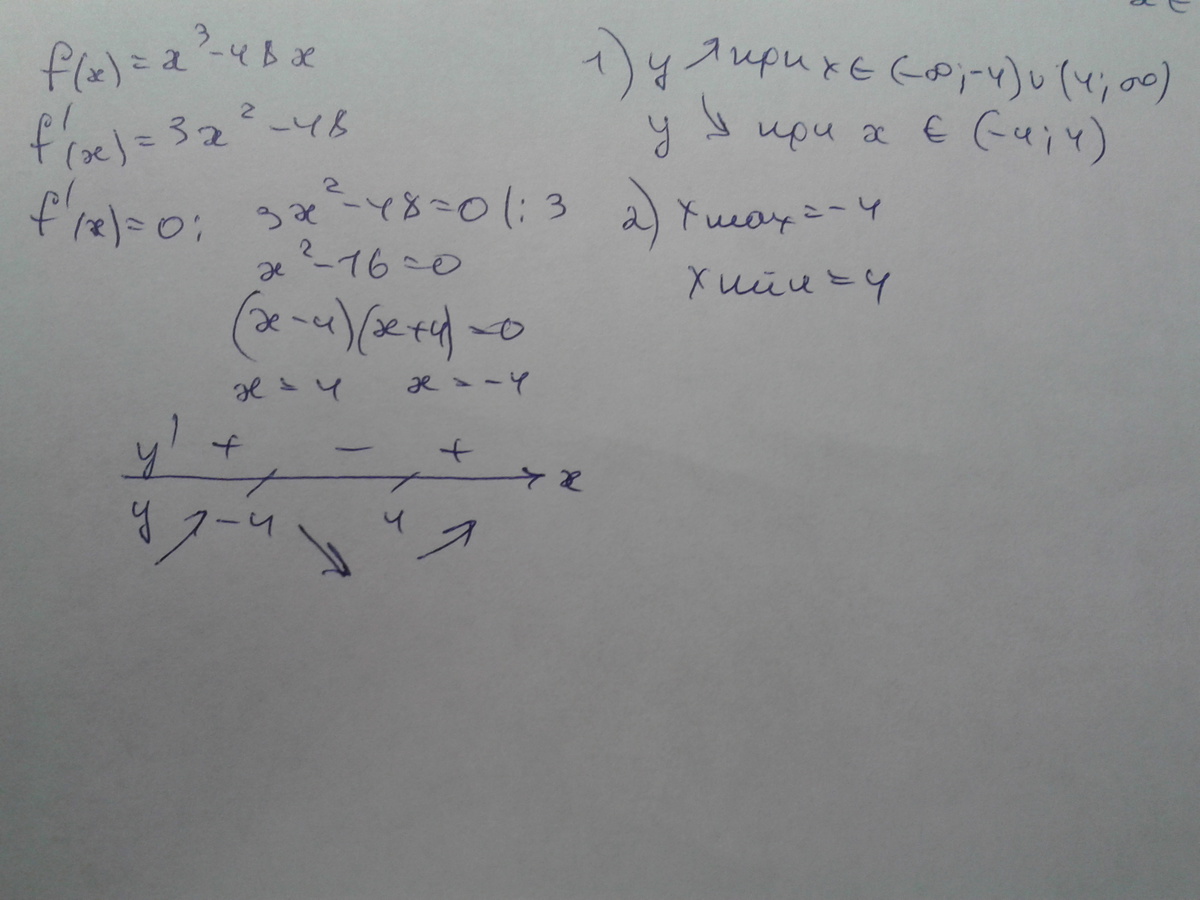 f(x) = x³ - 48x
f'(x) = 3x² - 48
f'(x) = 0; 3x² - 48 = 0 |: 3
x² - 16 = 0
(x - 4)(x + 4) = 0
x = 4 x = -4
y' + - + x
y ↗ -4 ↘ 4 ↗
1) y ↗ при x ∈ (-∞; -4) ∪ (4; ∞)
y ↘ при x ∈ (-4; 4)
2) x max = -4
x min = 4
x ∈